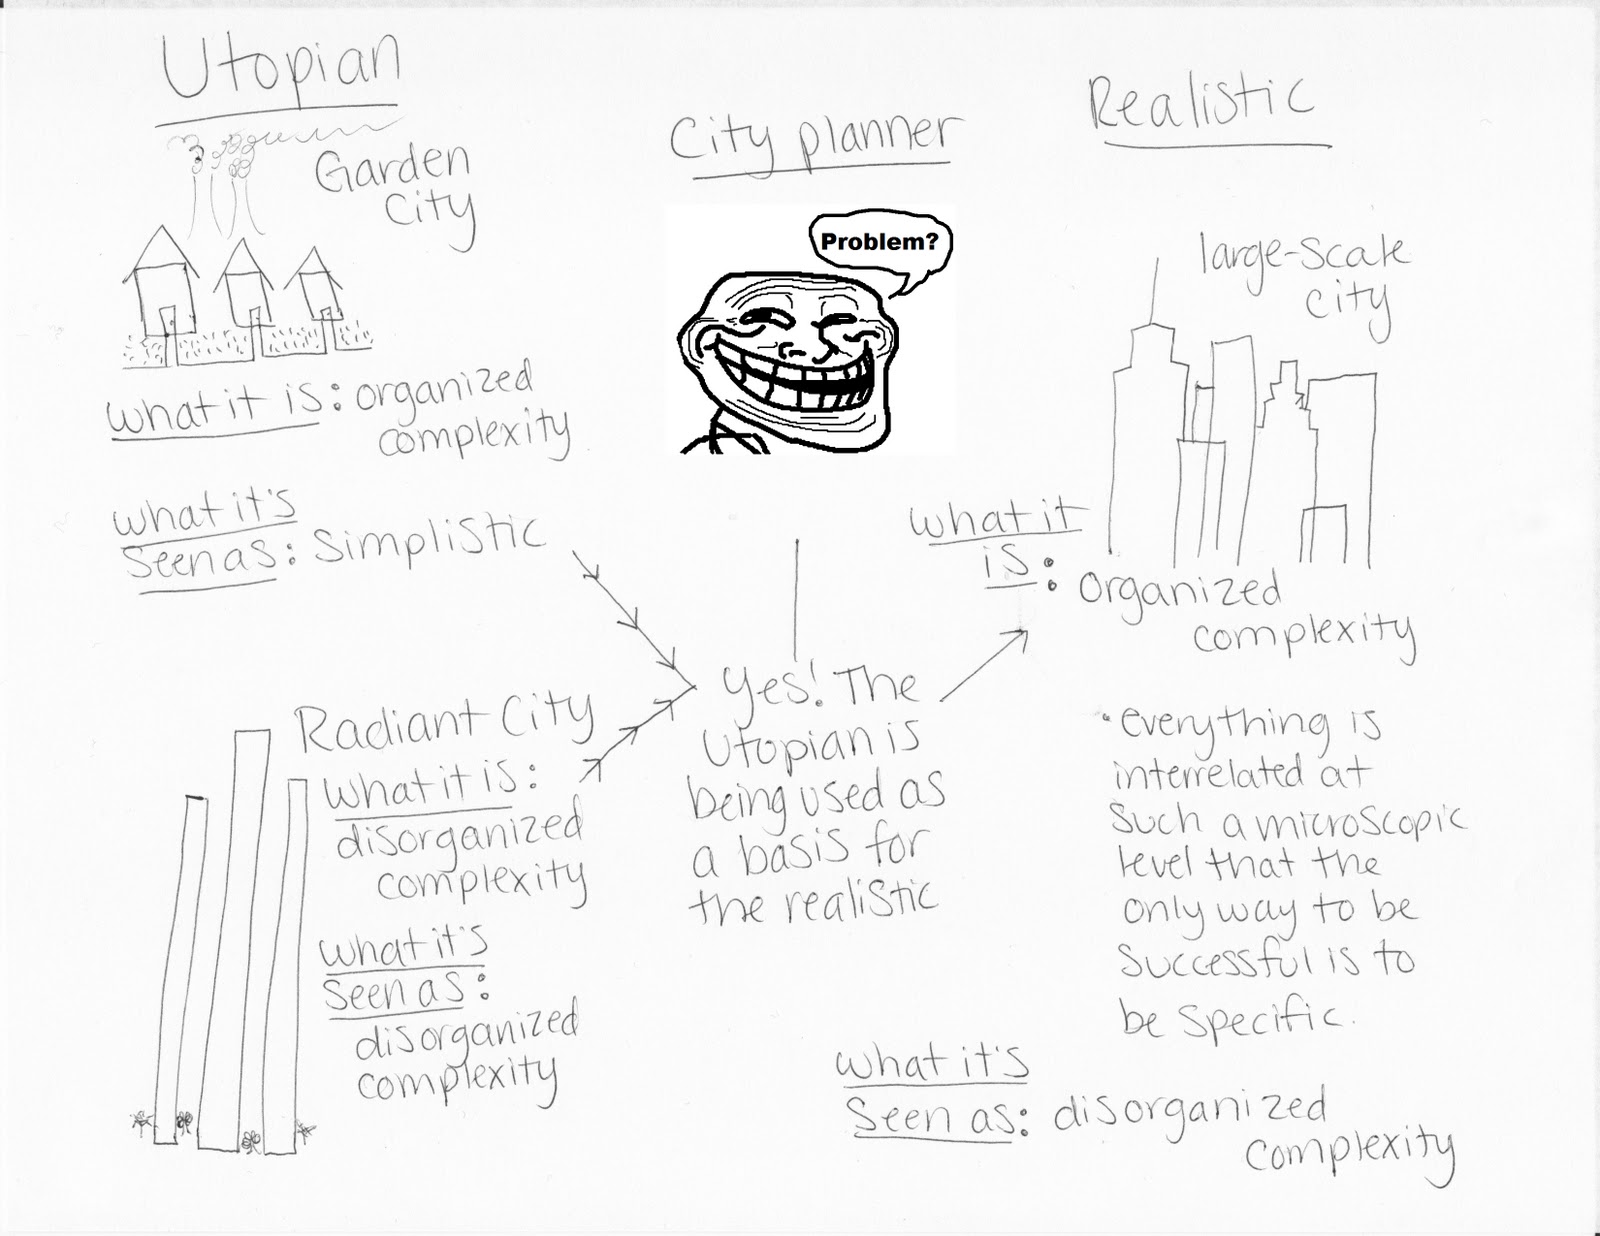 Utopian
Garden
City
what it is: organized
complexity
what it's
seen as: simplistic
Radiant City
what it is:
disorganized
complexity
what it's
seen as:
disorganized
complexity
City planner
Problem?
Yes! The
Utopian is
being used as
a basis for
the realistic
Realistic
large-scale
city
what it
is: organized
complexity
• everything is
interrelated at
such a microscopic
level that the
only way to be
successful is to
be specific.
what it's
seen as: disorganized
complexity